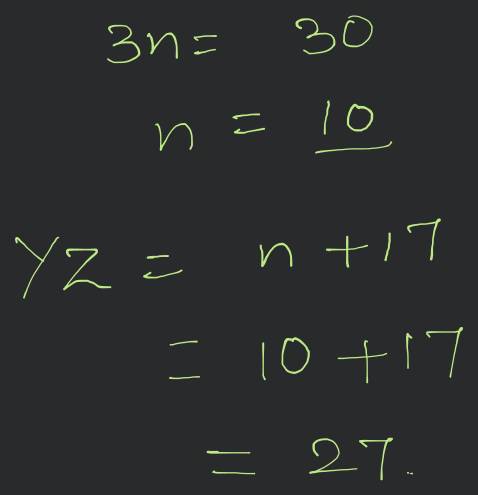 3n = 30
n = 10
YZ = n + 17
= 10 + 17
= 27.